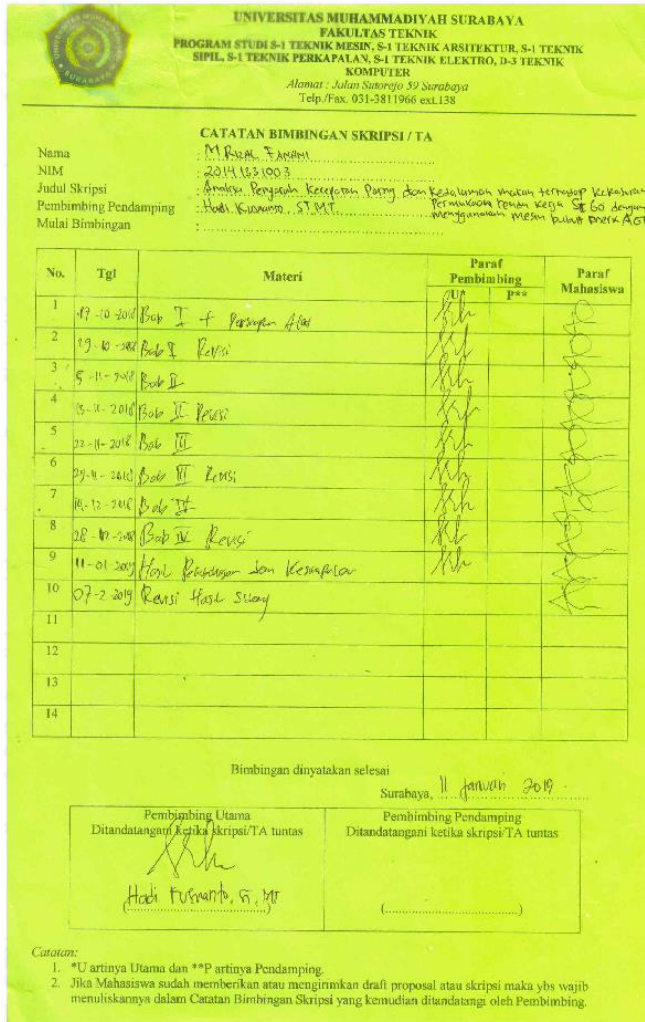 UNIVERSITAS MUHAMMADIYAH SURABAYA
FAKULTAS TEKNIK
PROGRAM STUDI S-1 TEKNIK MESIN, S-1 TEKNIK ARSITEKTUR, S-1 TEKNIK
SIPIL, S-1 TEKNIK PERKAPALAN, S-1 TEKNIK ELEKTRO, D-3 TEKNIK
KOMPUTER
Alamat : Jalan Sutorejo 59 Surabaya
Telp./Fax. 031-3811966 ext.138
CATATAN BIMBINGAN SKRIPSI / TA
Nama : M Rizal Fanani
NIM : 20141331003
Judul Skripsi : Analisa Pengaruh Kecepatan dan Kedalaman makan terhadap Kekasaran
Permukaan benda kerja St 60 dengan
Pembimbing Pendamping : Hadi Kusnanto, ST, MT
menggunakan mesin bubut merk
Mulai Bimbingan :
No. Tgl Materi Paraf Pembimbing Paraf Mahasiswa
U* P**
1 17-10-2018 Bab I +
2 29-10-2018 Bab I Revisi
3 5-11-2018 Bab II
4 15-11-2018 Bab II Revisi
5 22-11-2018 Bab III
6 29-11-2018 Bab III Revisi
7 -12-2018 Bab IV
8 28-12-2018 Bab IV Revisi
9 11-01-2019 Hasil dan Kesimpulan
10 07-2-2019 Revisi Hasil Sidang
11
12
13
14
Bimbingan dinyatakan selesai
Surabaya, 11 Januari 2019
Pembimbing Utama
Ditandatangani ketika skripsi/TA tuntas
Hadi Kusnanto, ST, MT
Pembimbing Pendamping
Ditandatangani ketika skripsi/TA tuntas
(........................................)
Catatan:
1. *U artinya Utama dan **P artinya Pendamping.
2. Jika Mahasiswa sudah memberikan atau mengirimkan draft proposal atau skripsi maka ybs wajib
menuliskannya dalam Catatan Bimbingan Skripsi yang kemudian ditandatangi oleh Pembimbing.